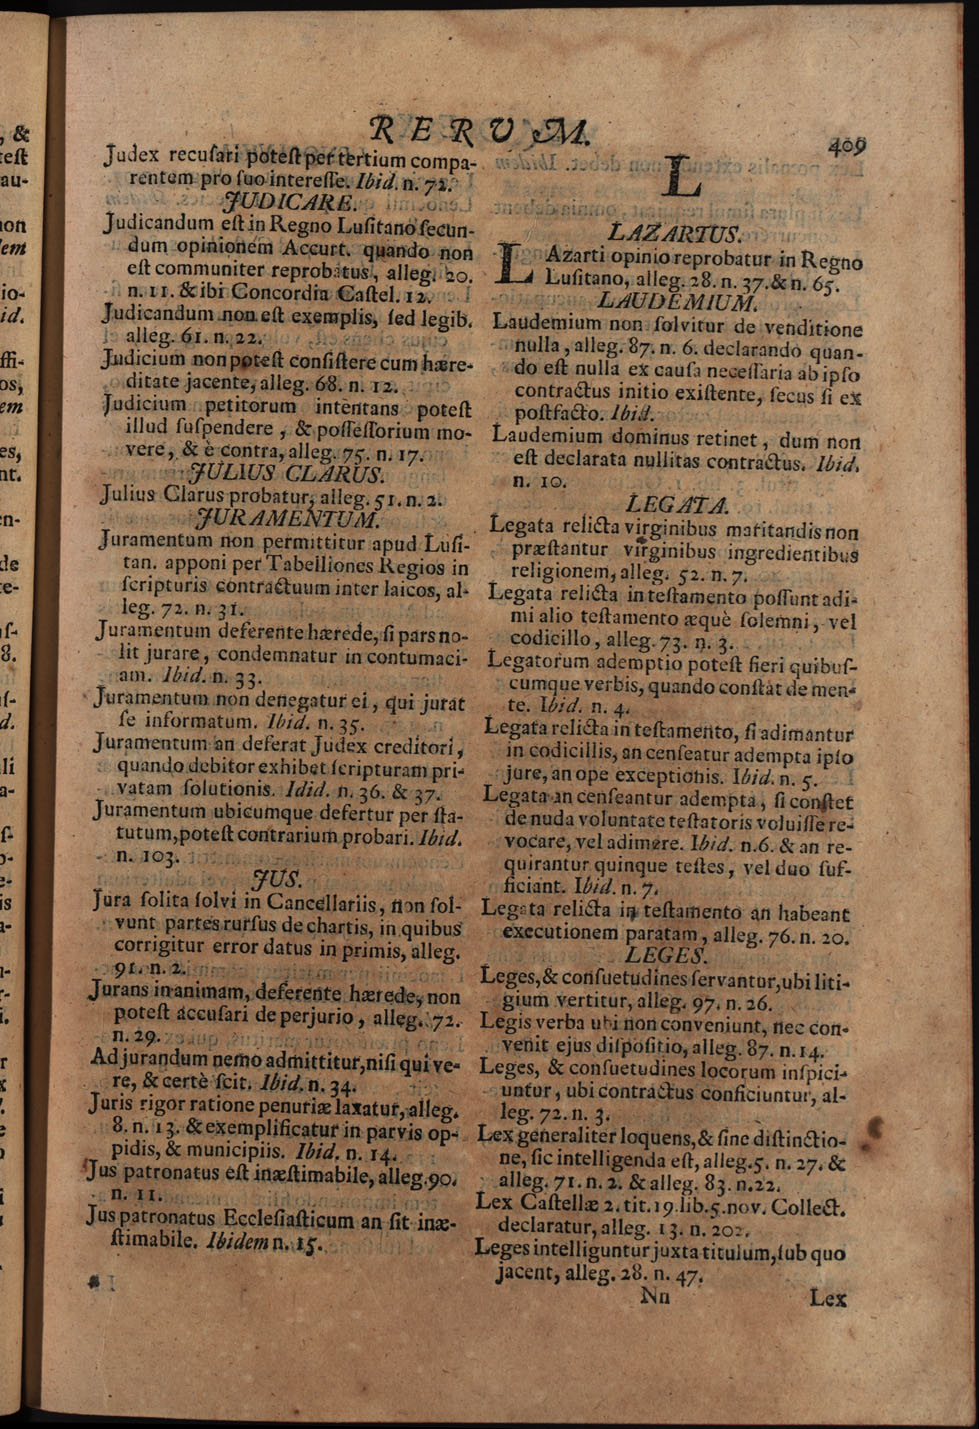 RERUM.
409
Judex recusari potest per tertium compa-
rentem pro suo interesse. Ibid. n. 72.
JUDICARE.
Judicandum est in Regno Lusitano secun-
dum opinionem Accurt. quando non
est communiter reprobatus, alleg. 20.
n. 11. & ibi Concordia Castel. 12.
Judicandum non est exemplis, sed legib.
alleg. 61. n. 22.
Judicium non potest consistere cum hære-
ditate jacente, alleg. 68. n. 12.
Judicium petitorum intentans potest
illud suspendere, & possessorium mo-
vere, & è contra, alleg. 75. n. 17.
JULIUS CLARUS.
Julius Clarus probatur, alleg. 51. n. 2.
JURAMENTUM.
Juramentum non permittitur apud Lusi-
tan. apponi per Tabelliones Regios in
scripturis contractuum inter laicos, al-
leg. 72. n. 31.
Juramentum deferente hærede, si pars no-
lit jurare, condemnatur in contumaci-
am. Ibid. n. 33.
Juramentum non denegatur ei, qui jurat
se informatum. Ibid. n. 35.
Juramentum an deferat Judex creditori,
quando debitor exhibet scripturam pri-
vatam solutionis. Idid. n. 36. & 37.
Juramentum ubicumque defertur per sta-
tutum, potest contrarium probari. Ibid.
n. 103.
JUS.
Jura solita solvi in Cancellariis, non sol-
vunt partes rursus de chartis, in quibus
corrigitur error datus in primis, alleg.
91. n. 2.
Jurans in animam, deferente hærede, non
potest accusari de perjurio, alleg. 72.
n. 29.
Ad jurandum nemo admittitur, nisi qui ve-
re, & certè scit. Ibid. n. 34.
Juris rigor ratione penuriæ laxatur, alleg.
8. n. 13. & exemplificatur in parvis op-
pidis, & municipiis. Ibid. n. 14.
Jus patronatus est inæstimabile, alleg. 90.
n. 11.
Jus patronatus Ecclesiasticum an sit inæ-
stimabile. Ibidem n. 15.
L
LAZARTUS.
LAzarti opinio reprobatur in Regno
Lusitano, alleg. 28. n. 37. & n. 65.
LAUDEMIUM.
Laudemium non solvitur de venditione
nulla, alleg. 87. n. 6. declarando quan-
do est nulla ex causa necessaria ab ipso
contractus initio existente, secus si ex
postfacto. Ibid.
Laudemium dominus retinet, dum non
est declarata nullitas contractus. Ibid.
n. 10.
LEGATA.
Legata relicta virginibus maritandis non
præstantur virginibus ingredientibus
religionem, alleg. 52. n. 7.
Legata relicta in testamento possunt adi-
mi alio testamento æquè solemni, vel
codicillo, alleg. 73. n. 3.
Legatorum ademptio potest fieri quibus-
cumque verbis, quando constat de men-
te. Ibid. n. 4.
Legata relicta in testamento, si adimantur
in codicillis, an censeatur adempta ipso
jure, an ope exceptionis. Ibid. n. 5.
Legata an censeantur adempta, si constet
de nuda voluntate testatoris voluisse re-
vocare, vel adimere. Ibid. n. 6. & an re-
quirantur quinque testes, vel duo suf-
ficiant. Ibid. n. 7.
Legata relicta in testamento an habeant
executionem paratam, alleg. 76. n. 20.
LEGES.
Leges, & consuetudines servantur, ubi liti-
gium vertitur, alleg. 97. n. 26.
Legis verba ubi non conveniunt, nec con-
venit ejus dispositio, alleg. 87. n. 14.
Leges, & consuetudines locorum inspici-
untur, ubi contractus conficiuntur, al-
leg. 72. n. 3.
Lex generaliter loquens, & sine distinctio-
ne, sic intelligenda est, alleg. 5. n. 27. &
alleg. 71. n. 2. & alleg. 83. n. 22.
Lex Castellæ 2. tit. 19. lib. 5. nov. Collect.
declaratur, alleg. 13. n. 202.
Leges intelliguntur juxta titulum, sub quo
jacent, alleg. 28. n. 47.
Nn
Lex